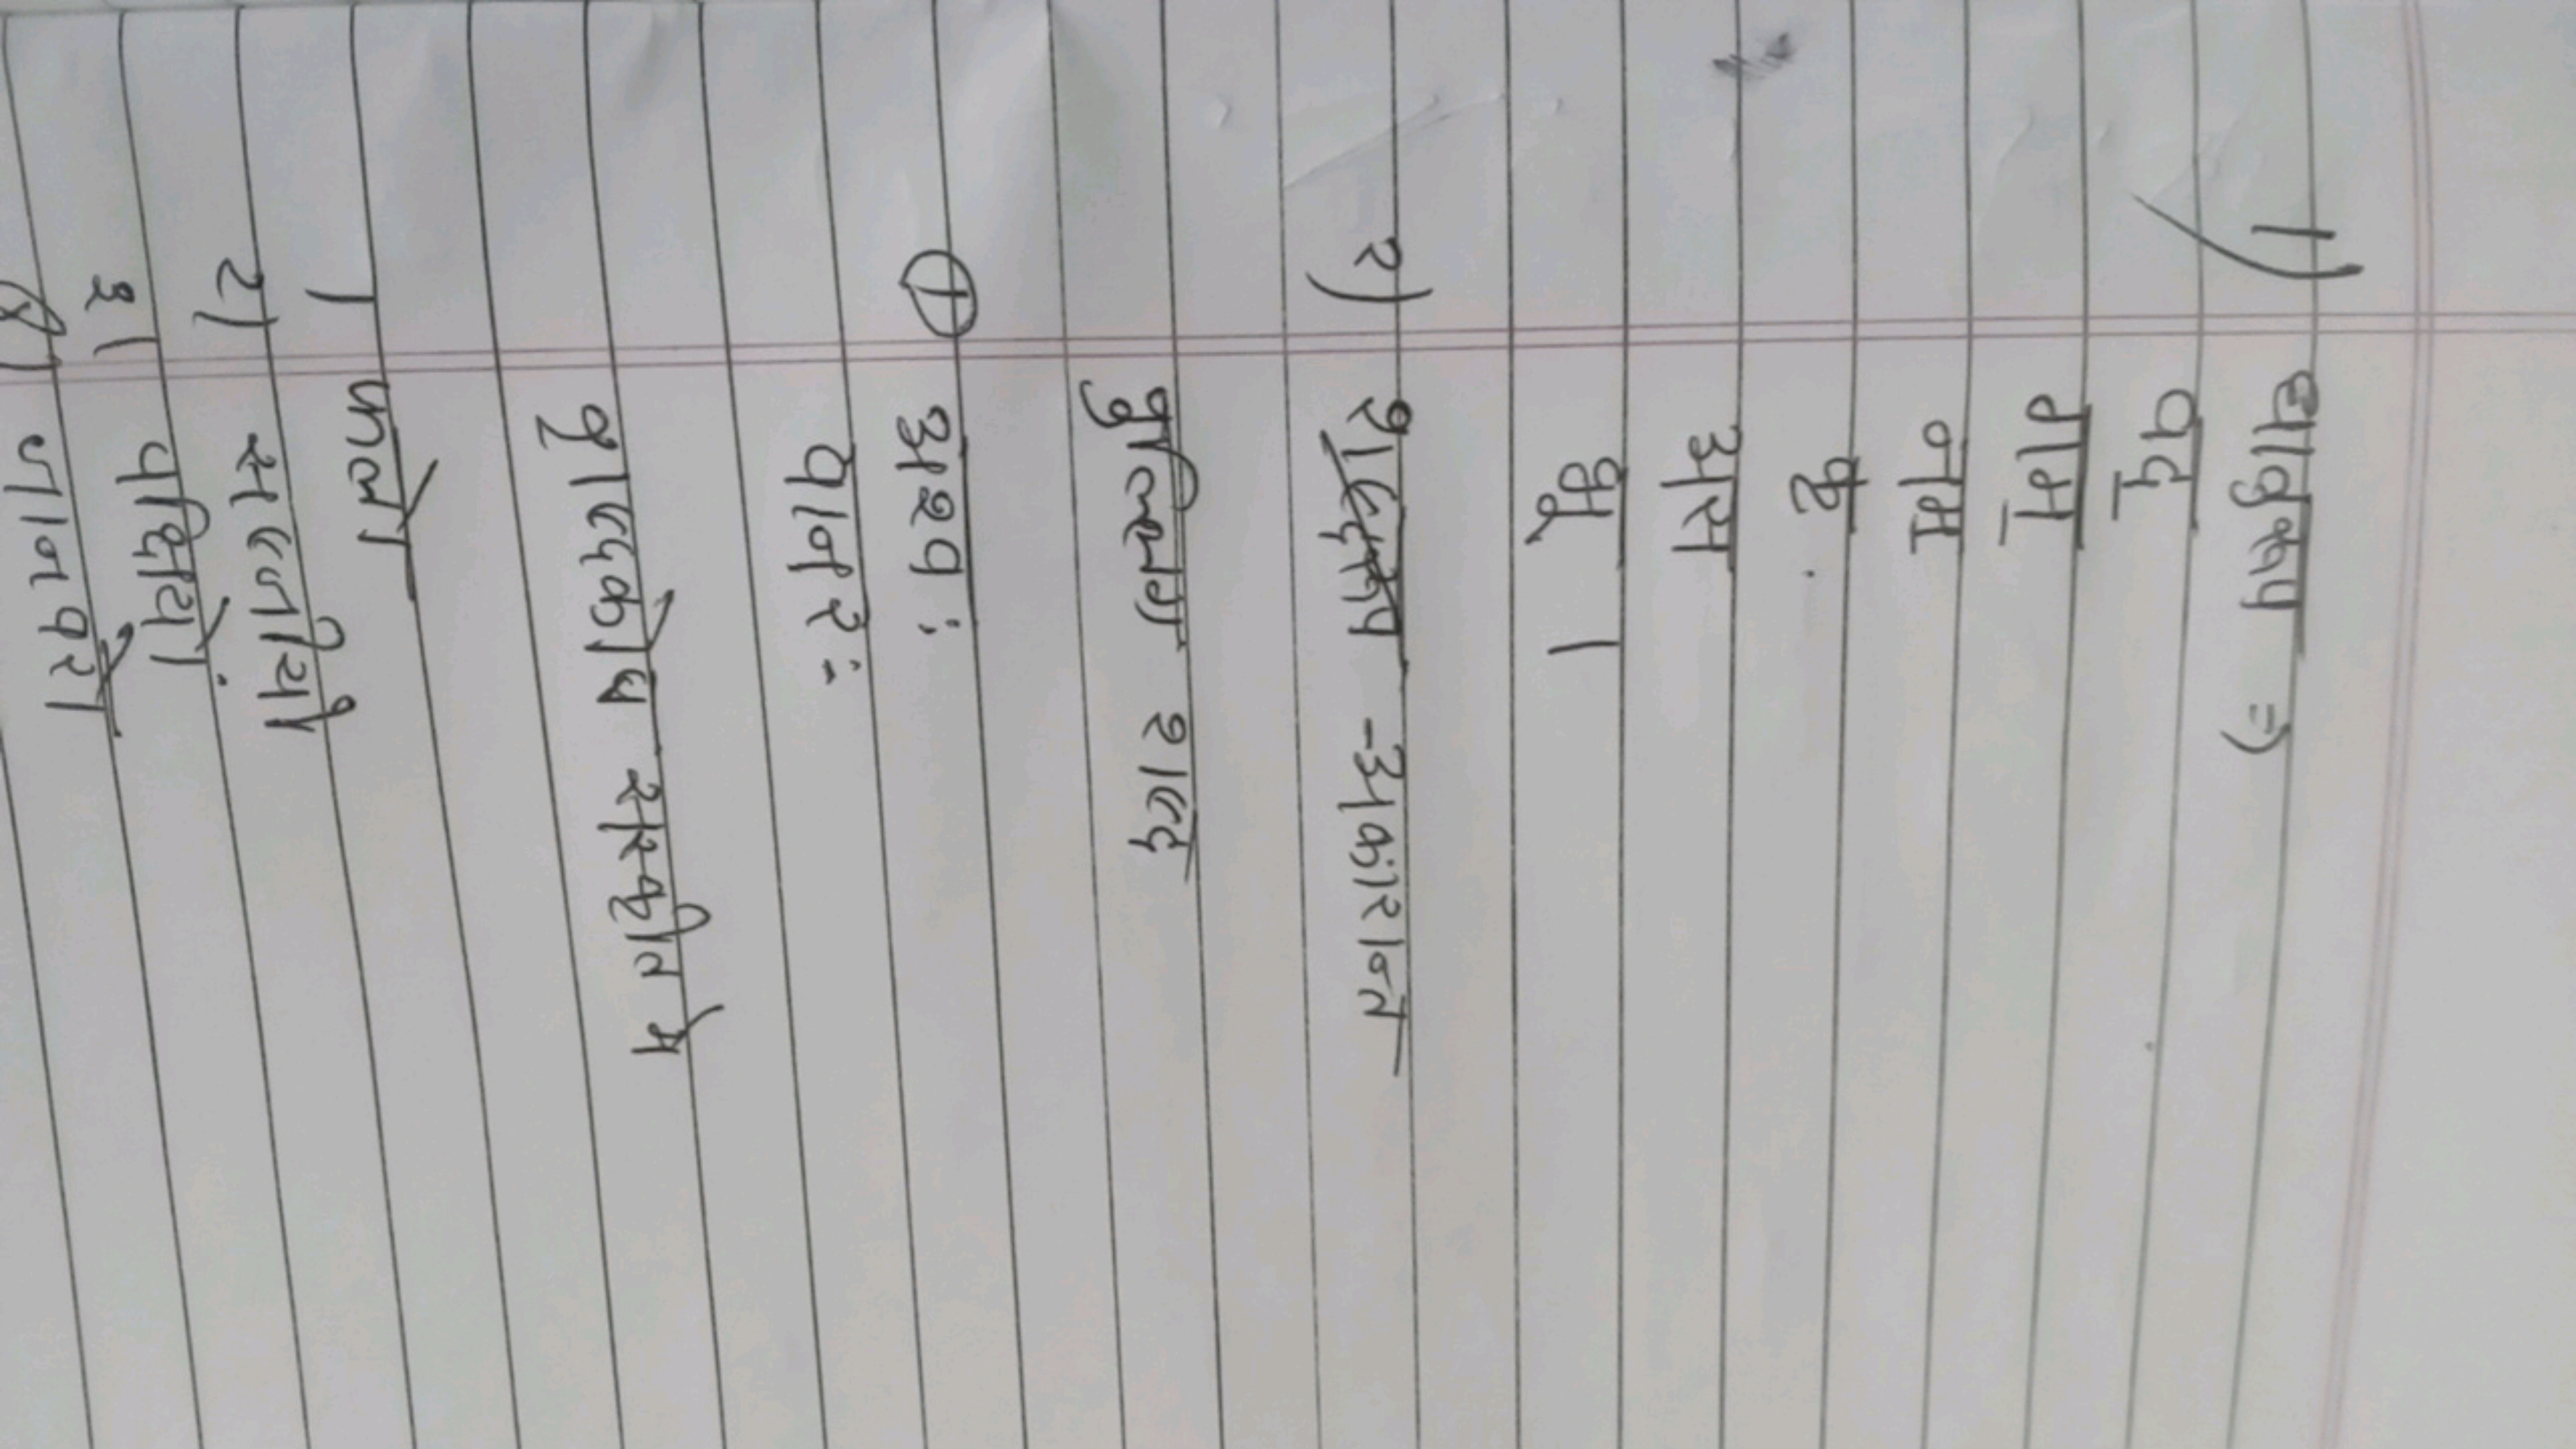 1) धातुरूप ⇒
वद्
गम्
नम
कृ
अस
भू ।
२) शब्दरूप - अकारान्त
पुल्लिंग शब्द
① अश्व :
वानर :
शब्दकोष संस्कृत में
1 फलों
2) सब्जीयों
३। पक्षियों
४) जानवरों